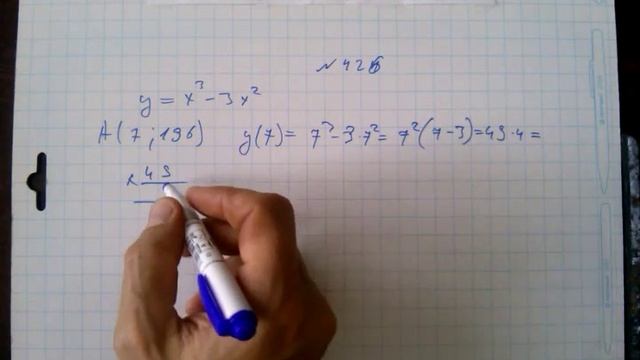 № 426
y = x³ - 3x²
A(7; 196) y(7) = 7³ - 3·7² = 7²(7-3) = 49·4 =
× 49